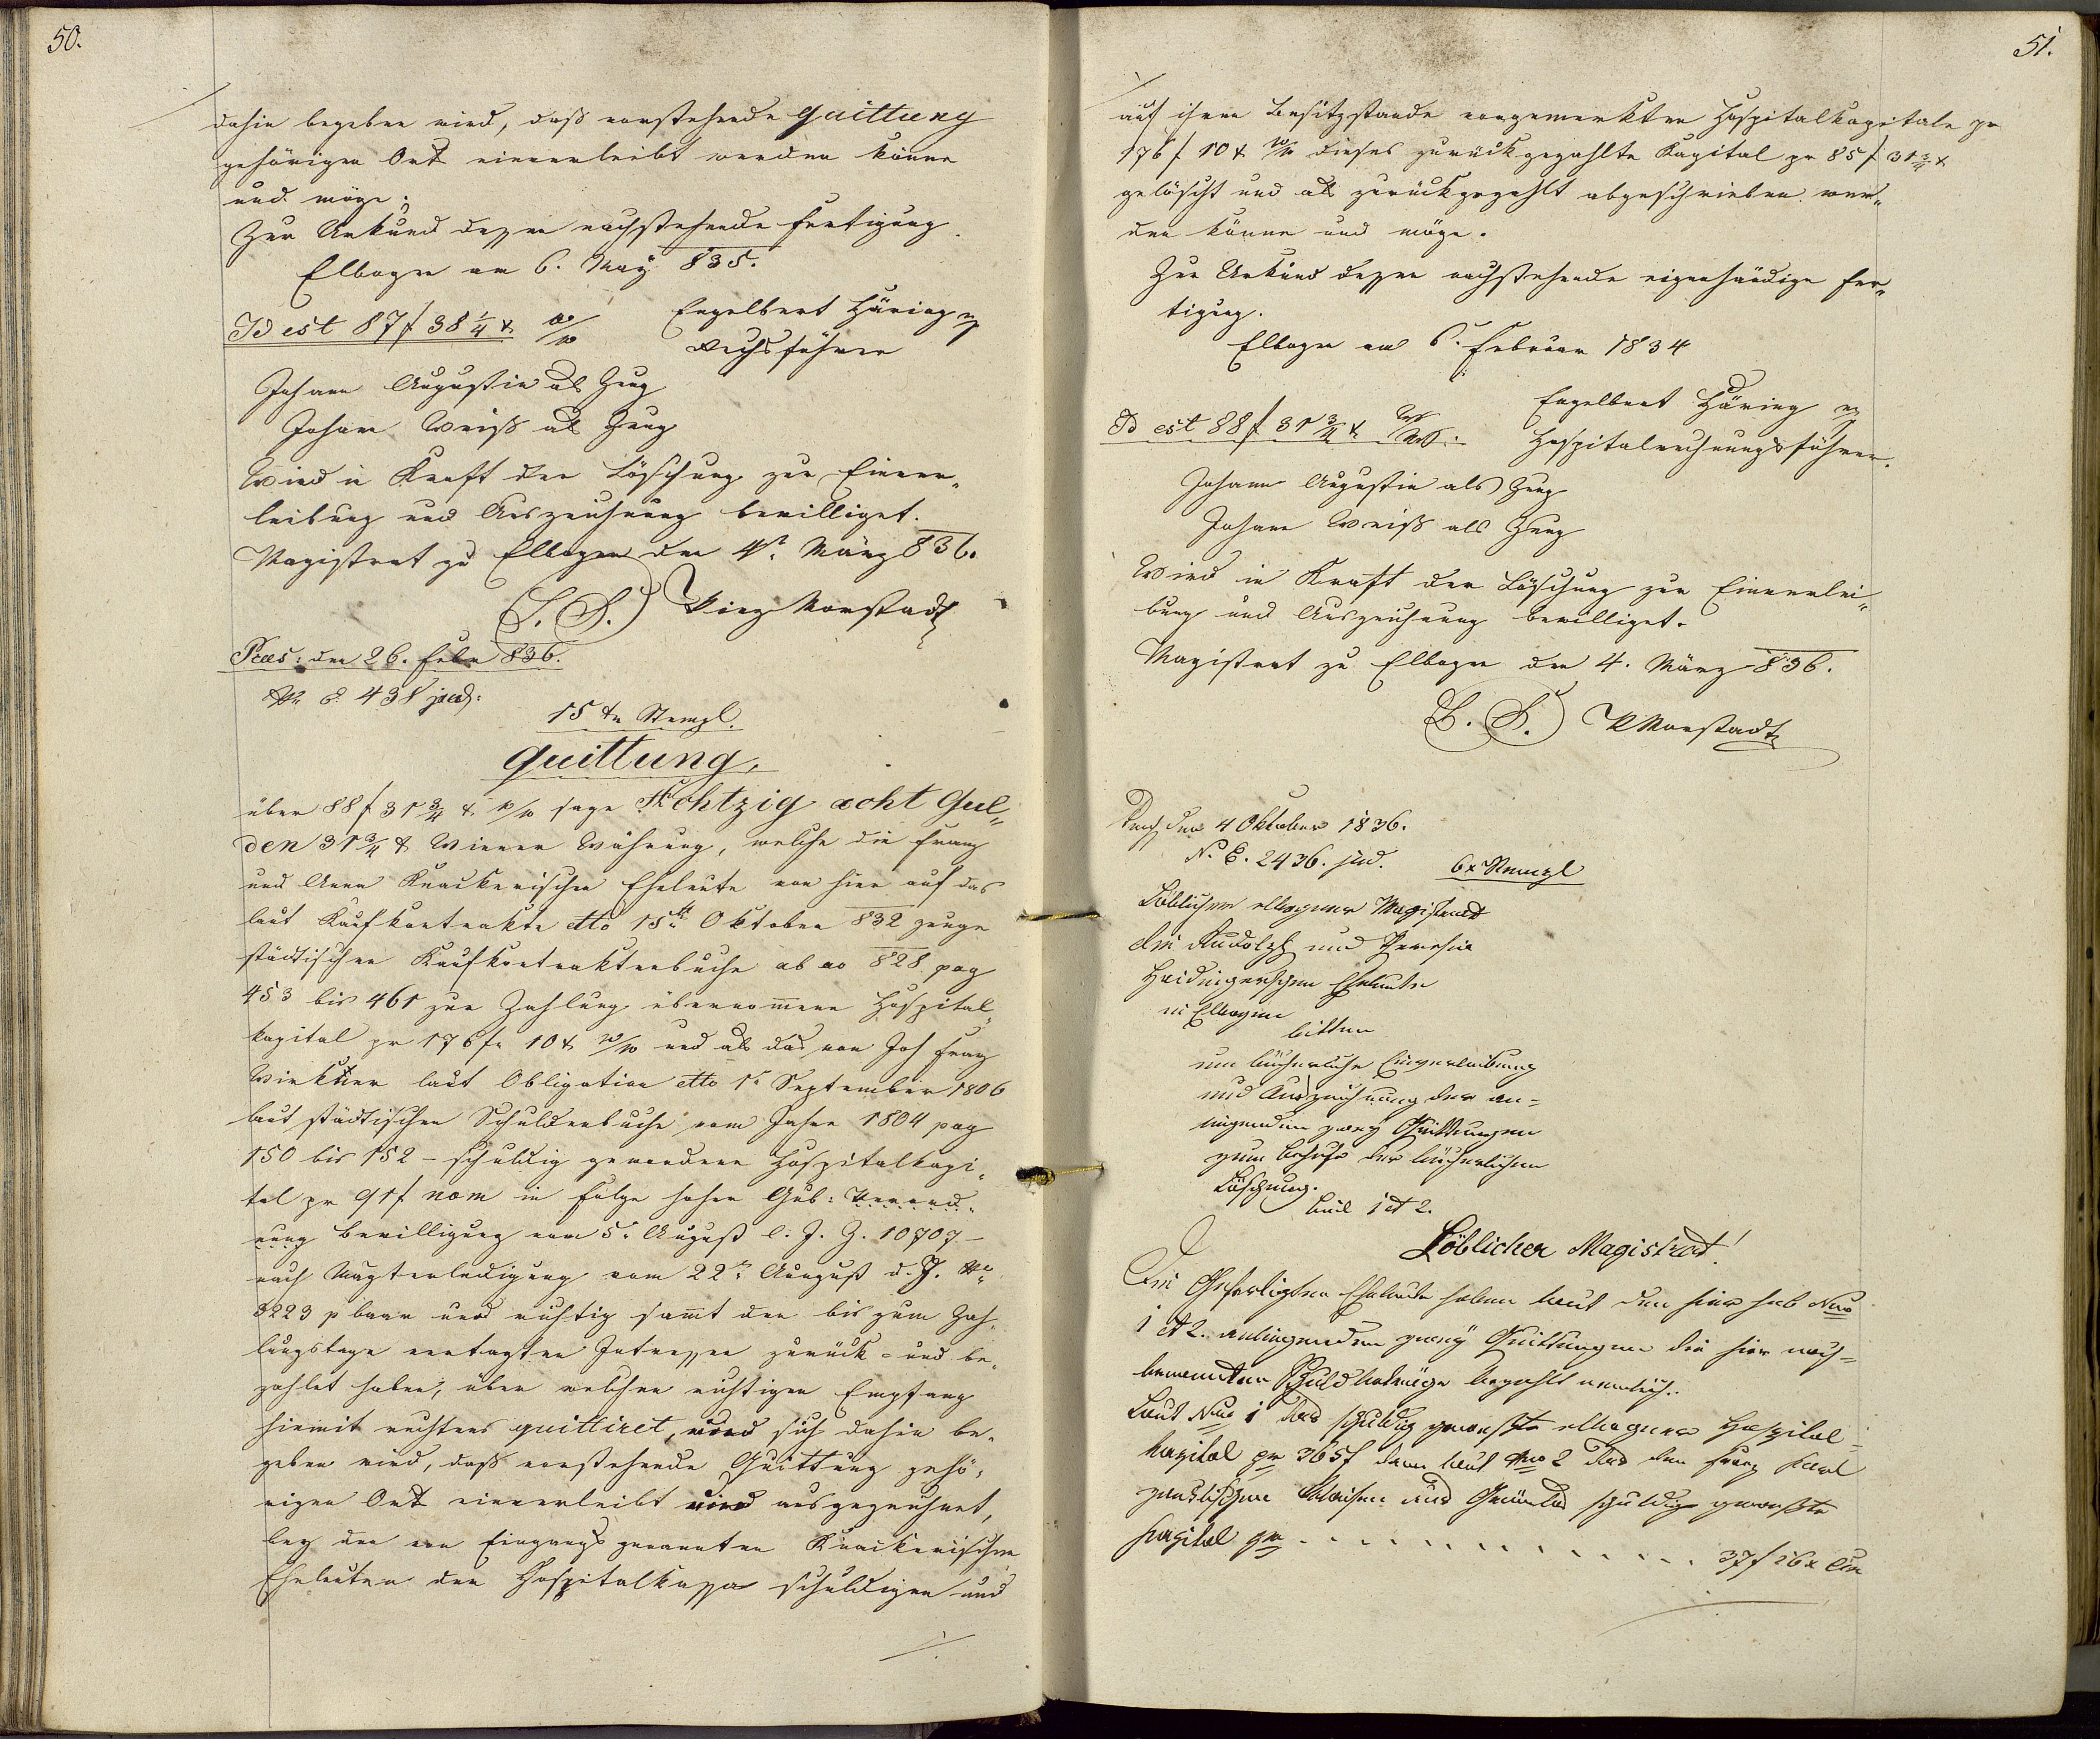 50.
dahin begeben wird, daß vorstehende Quittung
gehörigen Orts einverleibt werden könne
und möge.
Zur Urkund dessen nachstehende Fertigung.
Elbogen am 6. May 835.
Id est 87 f 38 1/4 x W/W
Engelbert Häring mp
Rechsführer
Johann Augustin als Zeug
Johann Weiß als Zeug
Wird in Kraft der Löschung zur Einver„
leibung und Auszeichnung bewilliget.
Magistrat zu Elbogen den 4t. März 836.
(L. S.) Vinz Vorstadt
Præs: den 26. Febr 836.
Nr E. 438 jud:
15 xr Stempl.
Quittung,
über 88 f 31 3/4 x W/W sage Achtzig acht Gul„
den 31 3/4 x Wiener Währung, welche die Franz
und Anna Knackerischen Eheleute von hier auf das
laut Kaufkontrakte dtto 15tn Oktober 832 zeuge
städtischen Kaufkontraktenbuche ab ao 828 pag
453 bis 461 zur Zahlung übernommene Hospital„
kapital pr 176 f. 10 x W/W und als das von Joh Franz
laut Obligation dtto 1t September 1806
laut städtischen Schuldenbuche vom Jahre 1804 pag
150 bis 152 – schuldig gewordene Hospitalkapi„
tal pr 91 f nom in Folge hohen Gub: Verord„
nung Bewilligung vom 5. August l. J. Z. 10707 –
nach Magterledigung vom 22tn August d. J. Nr
3223 p baar und richtig samt den bis zum Zah„
lungstage vertagten Intressen zurück- und be„
zahlet haben, über welchen richtigen Empfang
hiemit rechtens quittiret, und sich dahin be„
geben wird, daß vorstehende Quittung gehö„
rigen Orts einverleibt und ausgezeichnet,
bey den von Eingangs genannten Knackerischen
Eheleuten der Hospitalkassa schuldigen und
./.
51.
auf ihrem Besitzstande vorgemerkten Hospitalkapitale pr
176 f 10 x W/W dieses zurückgezahlte Kapital pr 85 f 31 3/4 x
gelöscht und als zurückgezahlt abgeschrieben wer„
den könne und möge.
Zur Urkund dessen nachstehende eigenhändige Fer„
tigung.
Elbogen am 6. Februar 1834
Id est 88 f 31 3/4 x W/W.
Engelbert Häring mp
Hospitalrechnungsführer.
Johann Augustin als Zeug
Johann Weiß als Zeug
Wird in Kraft der Löschung zur Einverlei„
bung und Auszeichnung bewilliget.
Magistrat zu Elbogen den 4. März 836.
(L. S.) VVorstadt
den 4 Oktober 1836.
N. E. 2436. jud.
6x Stempl
Löblicher elbogner Magistrat
die Rudolph und Theresia
Haidingerschen Eheleute
in Elbogen
bitten
um bücherliche Einverleibung
und Auszeichnung der an-
liegenden zwey Quittungen
zum Behufe der bücherlichen
Löschung.
Beil 1 et 2.
Löblicher Magistrat!
Die Gefertigten Eheleute haben laut den hier sub Nro
1 et 2. anliegenden zwey Quittungen die hier nach-
benannten Schuldbeträge bezahlt nemlich:
Laut Nro 1 das schuldig gewesste elbogner Hospital-
kapital pr 365 f dann laut Nro 2 das den Franz Karl
Waisen und schuldig gewesste
Kapital pr . . . . . . . . . . . . . . 37 f 26 x